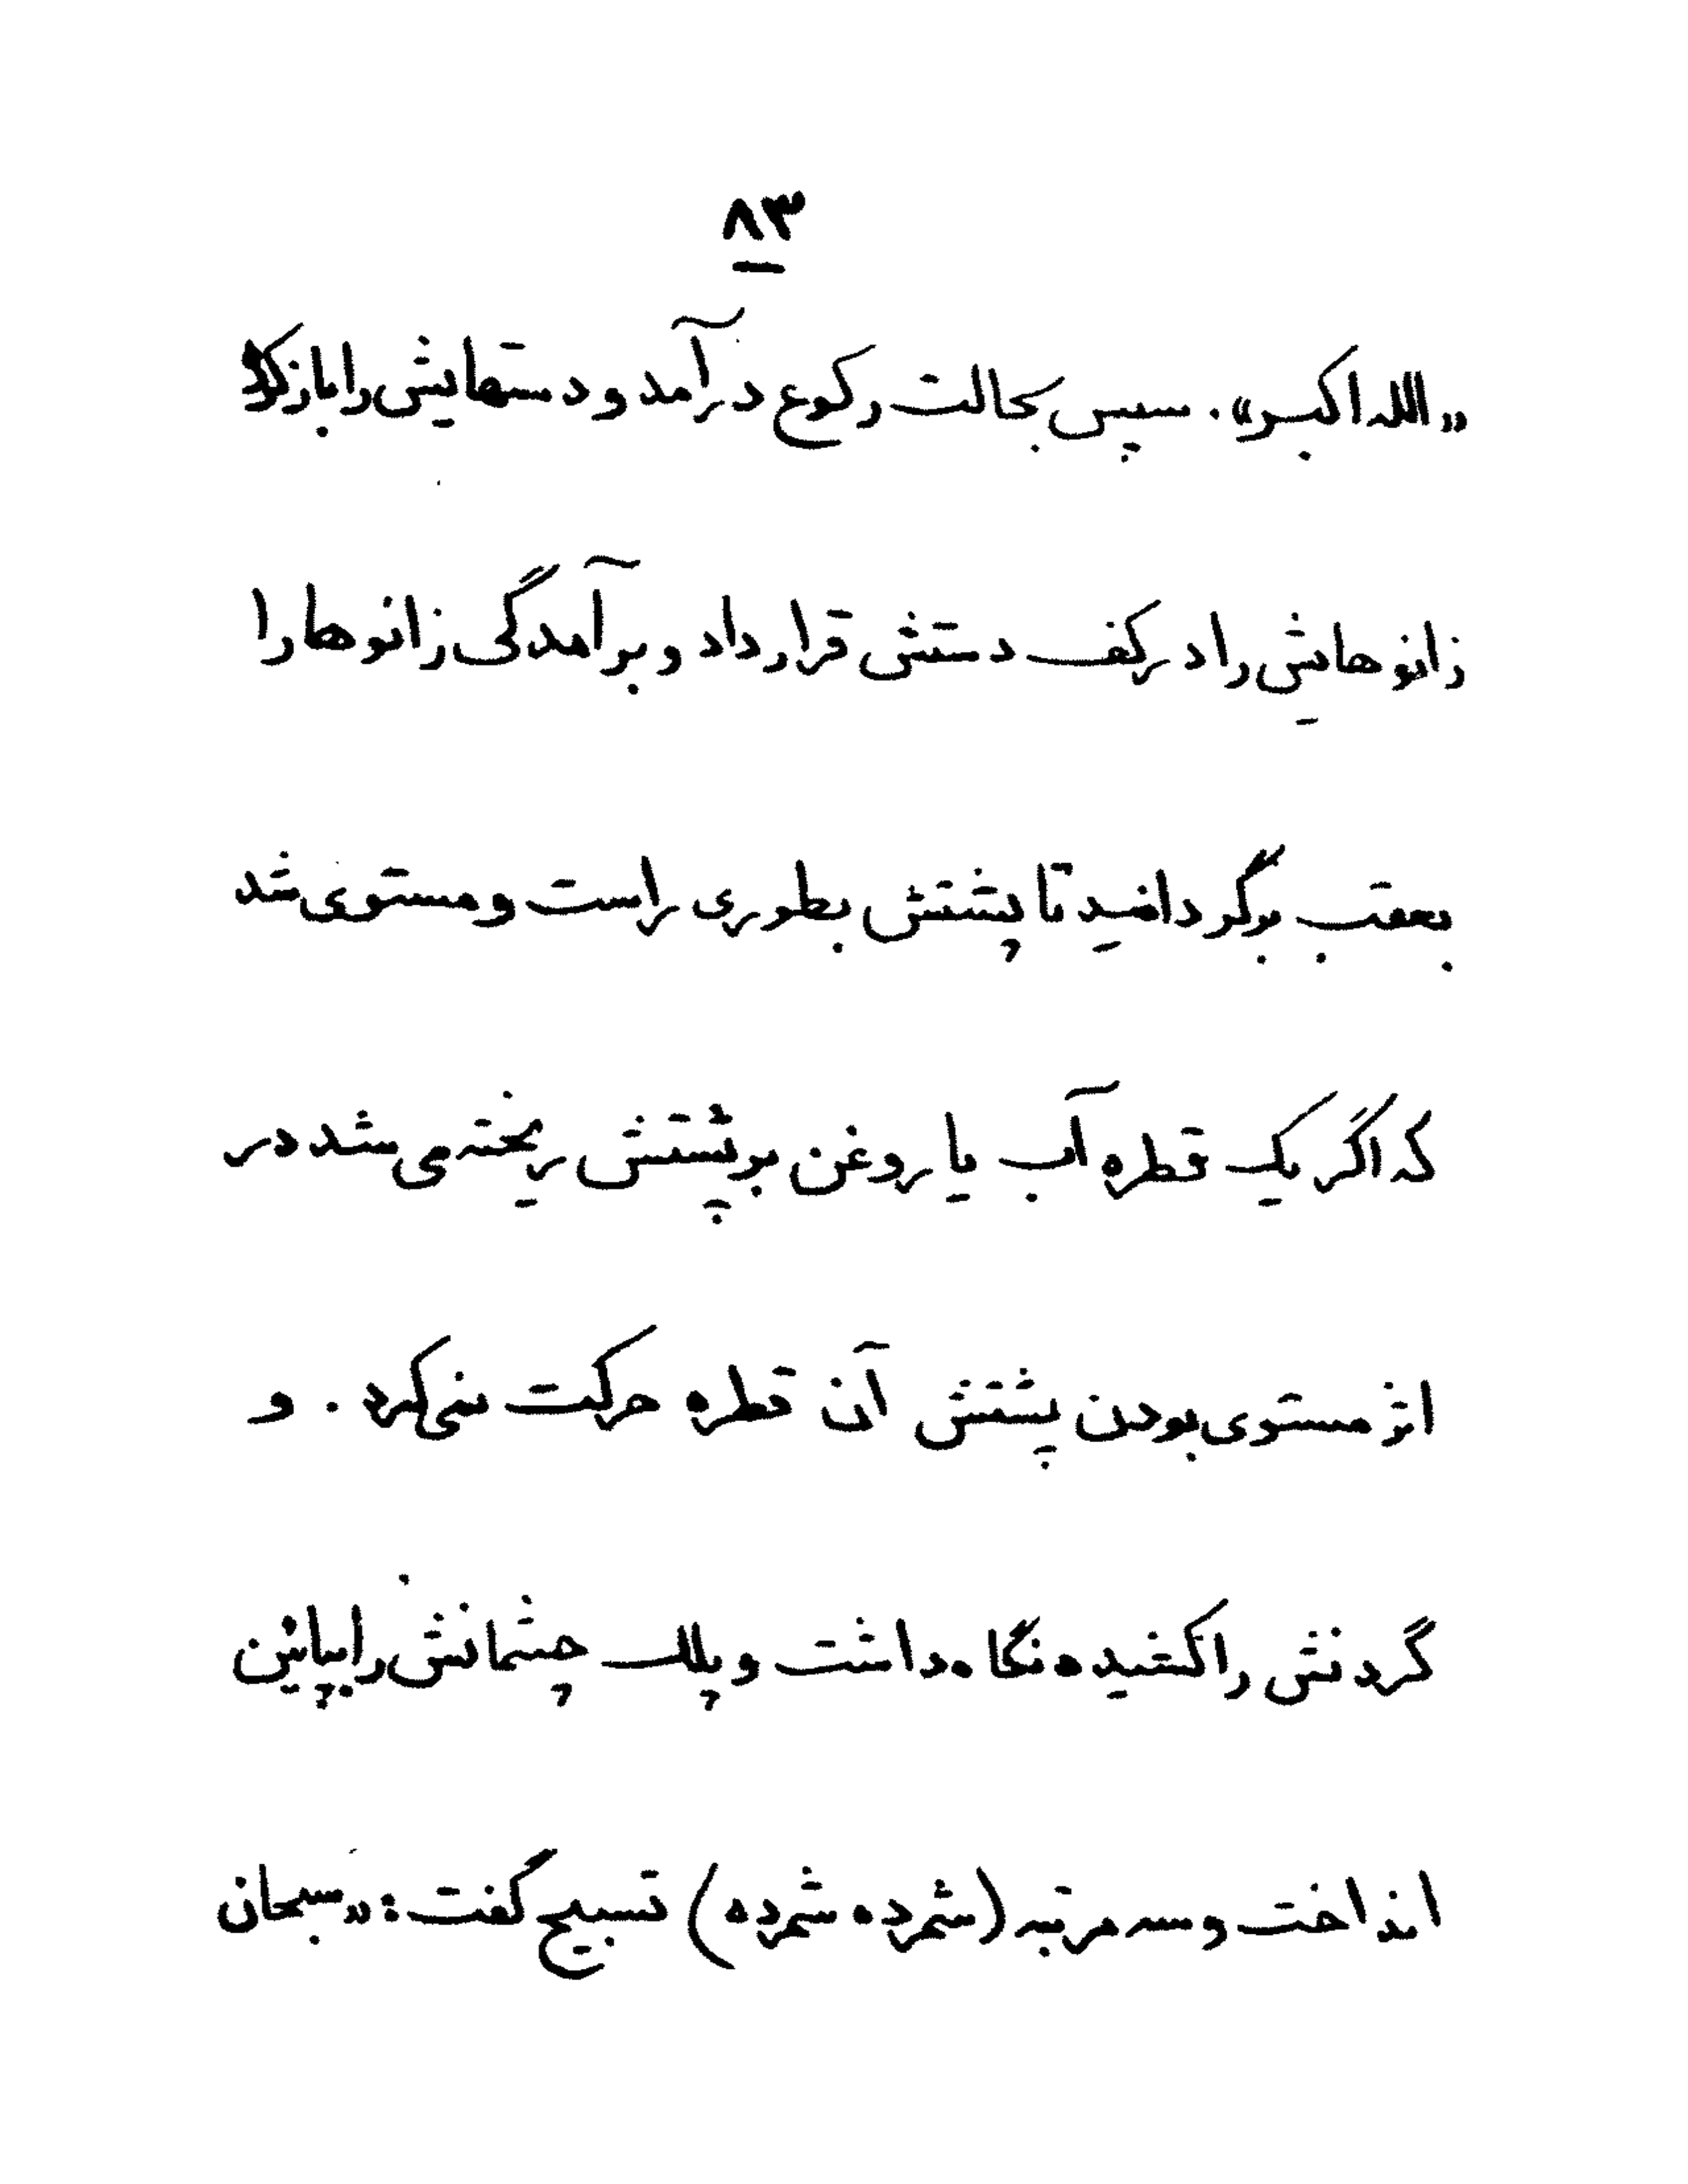 ۸۳
«الله اکبر». سپس بحالت رکوع درآمد و دستهایش را باز کرد
زانوهایش را در کف دستش قرار داد و برآمدگی زانوها را
بعقب برگردانید تا پشتش بطوری راست و مستوی شد
که اگر یک قطره آب یا روغن بر پشتش ریخته می شد در
اثر مستوی بودن پشتش آن قطره حرکت نمی کرد . و
گردنش را کشیده نگاه داشت و پلک چشمانش را بپائین
انداخت و سه مرتبه (شمرده شمرده) تسبیح گفت: «سبحان